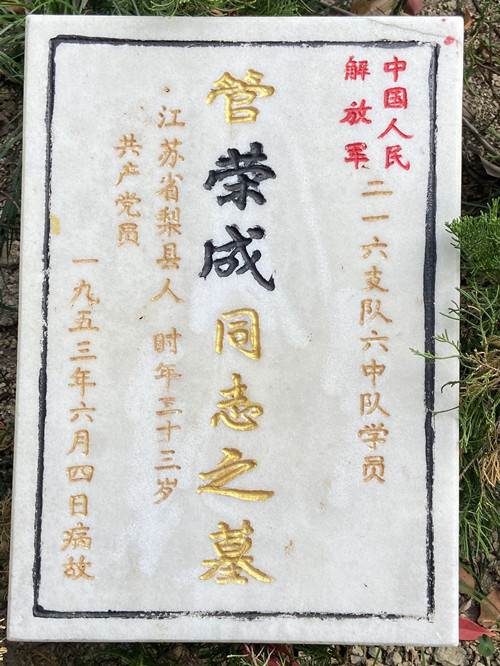 中国人民
解放军
二一六支队六中队学员
管荣成同志之墓
江苏省梨县人 时年三十三岁
共产党员
一九五三年六月四日病故